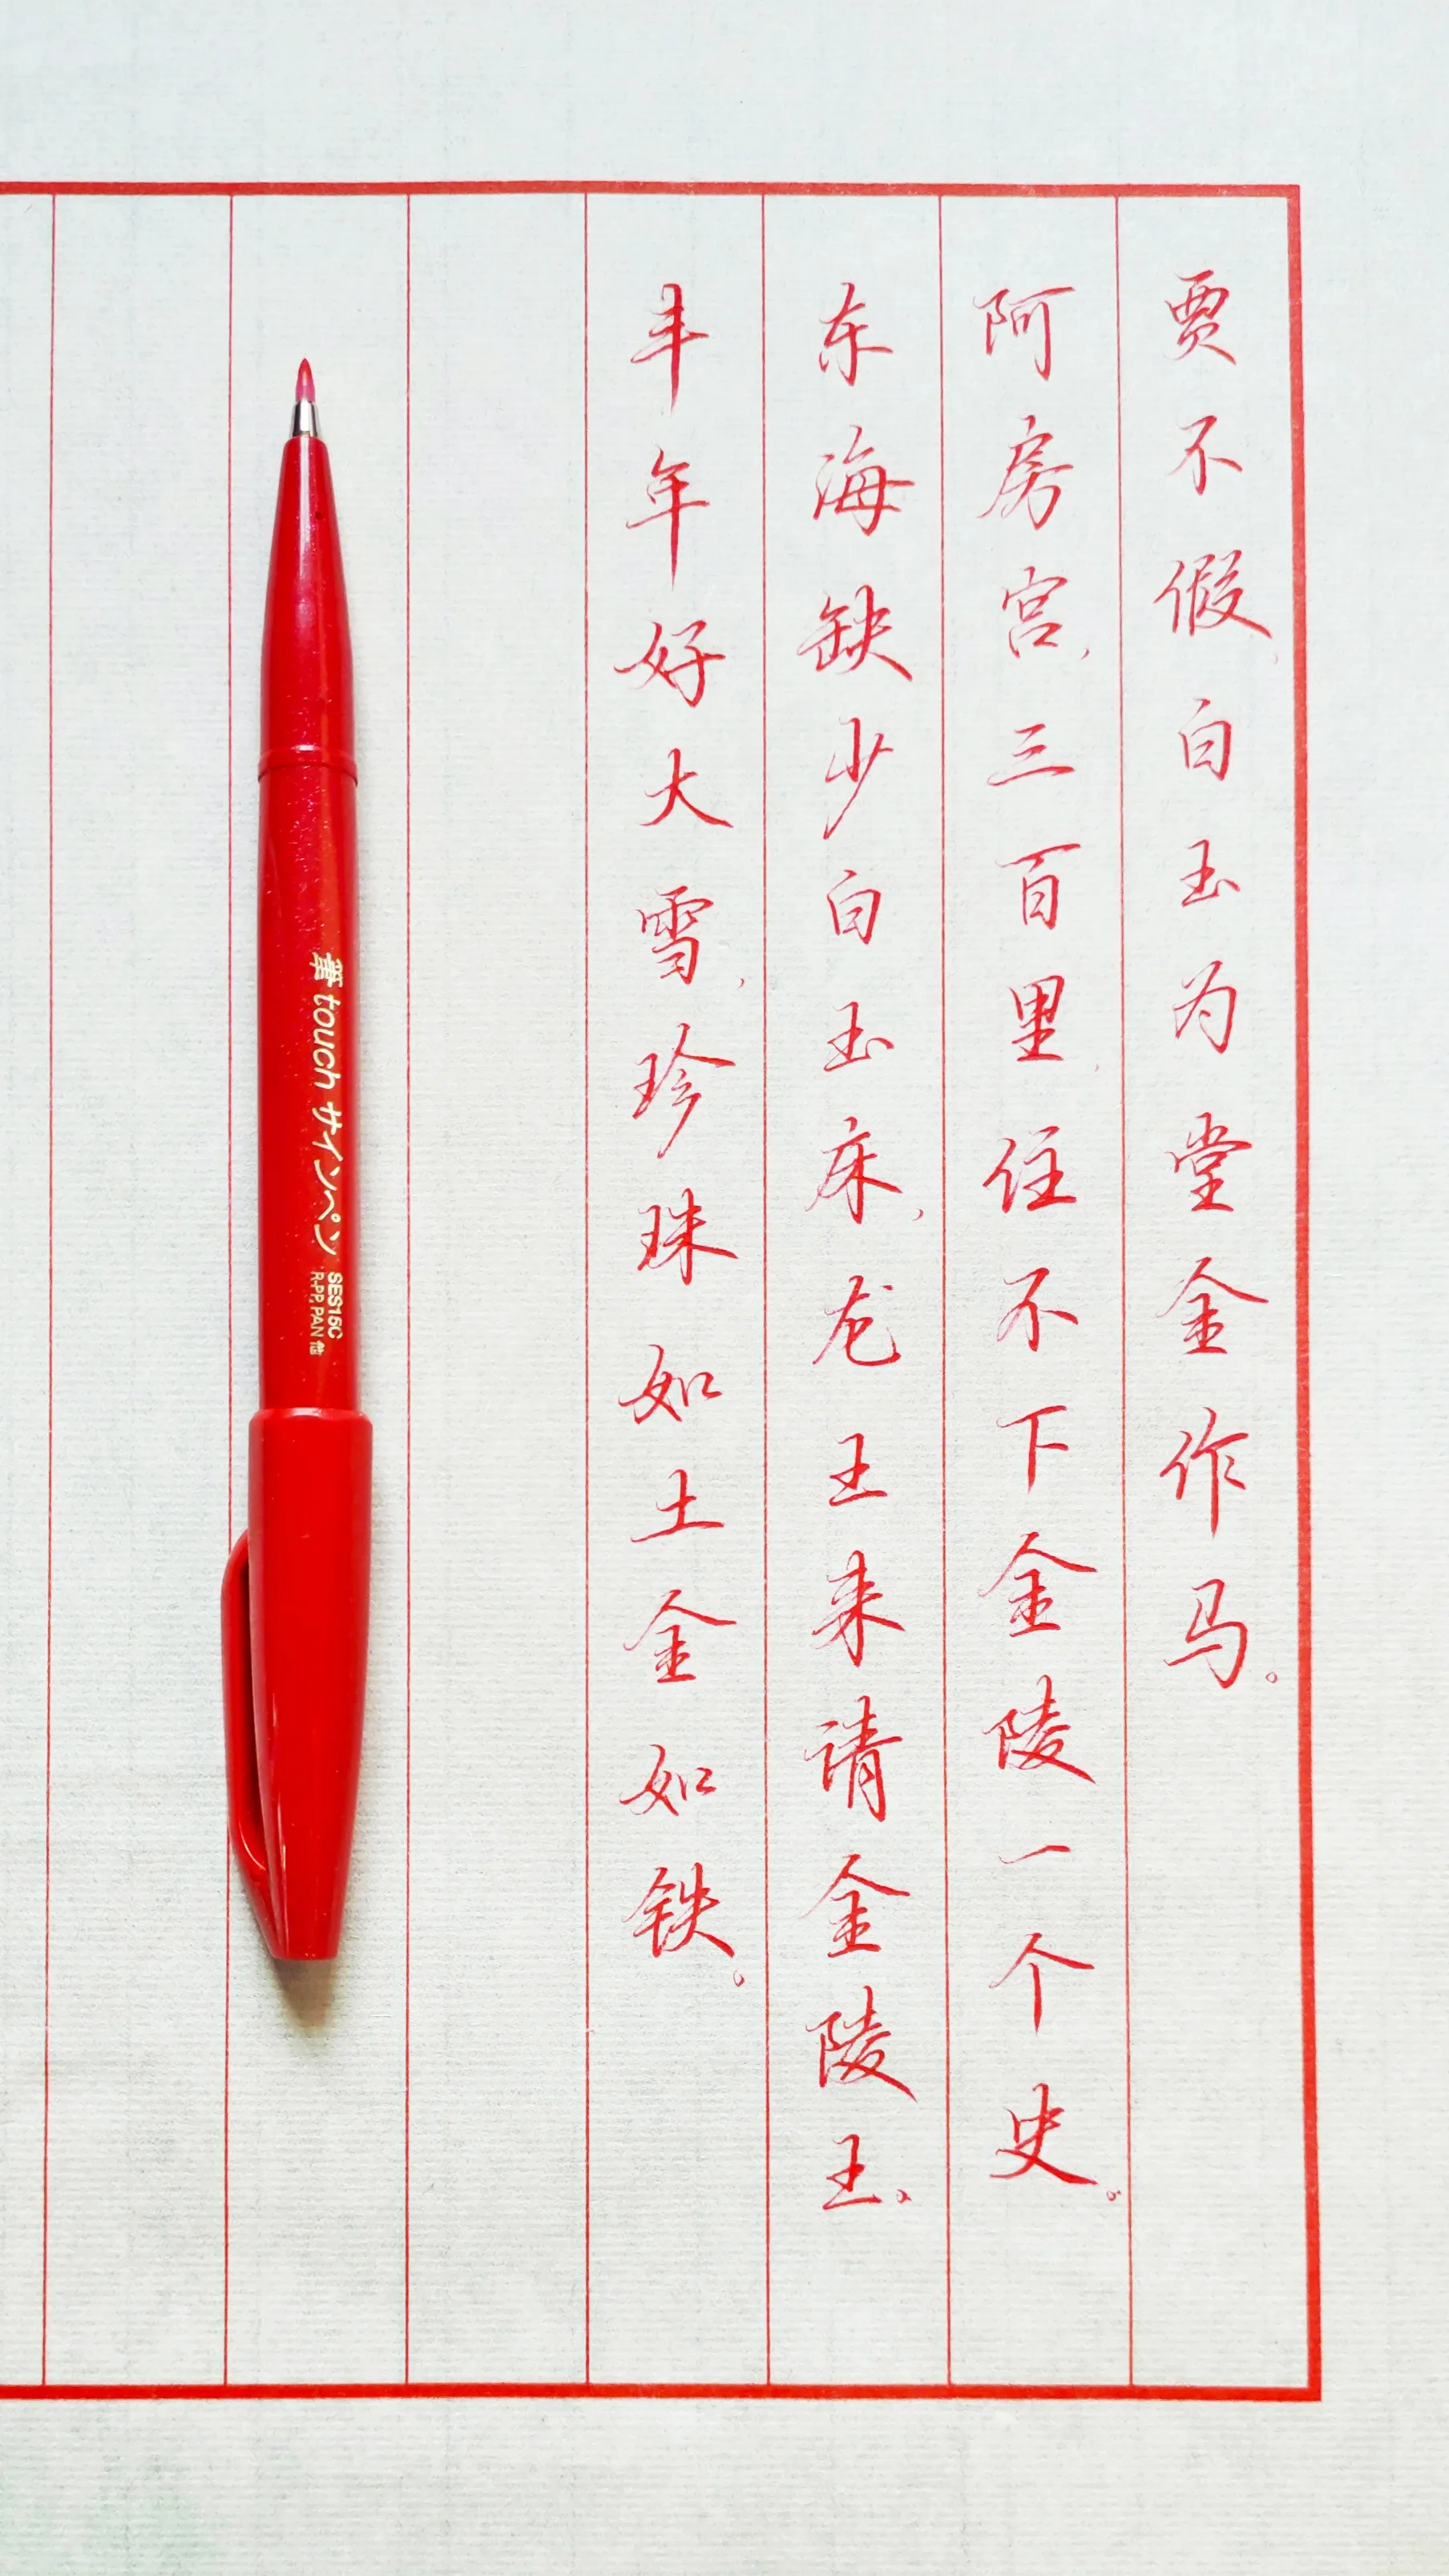 贾不假,白玉为堂金作马。
阿房宫,三百里,住不下金陵一个史。
东海缺少白玉床,龙王来请金陵王。
丰年好大雪,珍珠如土金如铁。
筆touch サインペン SES15C
R.PP, PAN 他